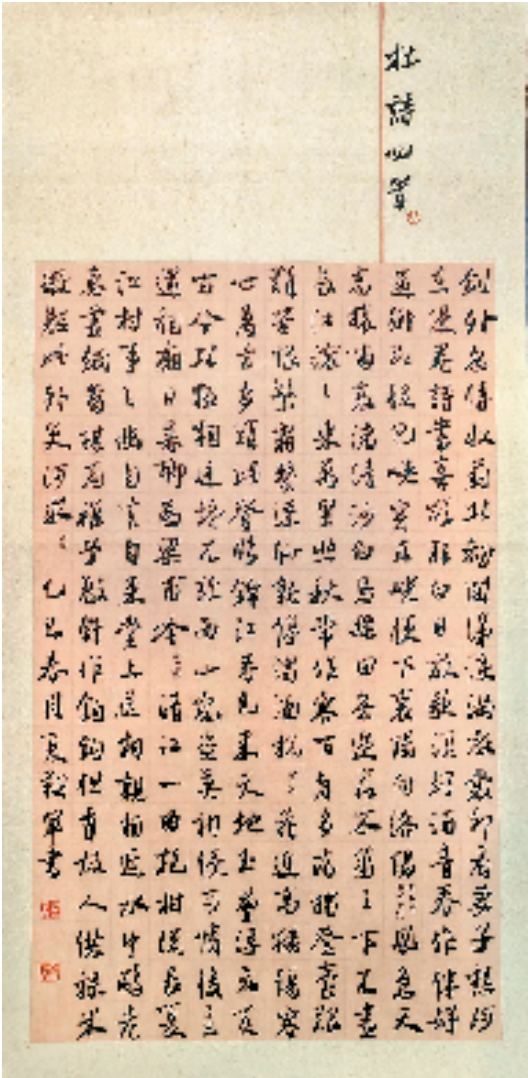 杜詩四首
劍外忽傳收薊北初聞涕淚滿衣裳卻看妻子愁何
在漫卷詩書喜欲狂白日放歌須縱酒青春作伴好
還鄉即從巴峽穿巫峽便下襄陽向洛陽 風急天
高猿嘯哀渚清沙白鳥飛回無邊落木蕭〻下不盡
長江滾〻來萬里悲秋常作客百年多病獨登臺艱
難苦恨繁霜鬢潦倒新停濁酒杯〻花近高樓傷客
心萬方多難此登臨錦江春色來天地玉壘浮雲變
古今北極朝廷終不改西山寇盜莫相侵可憐後主
還祠廟日暮聊為梁甫吟〻清江一曲抱村流長夏
江村事〻幽自去自來堂上燕相親相近水中鷗老
妻畫紙為棋局稚子敲針作釣鉤但有故人供祿米
微軀此外更何求〻 乙巳春月夏 軍書